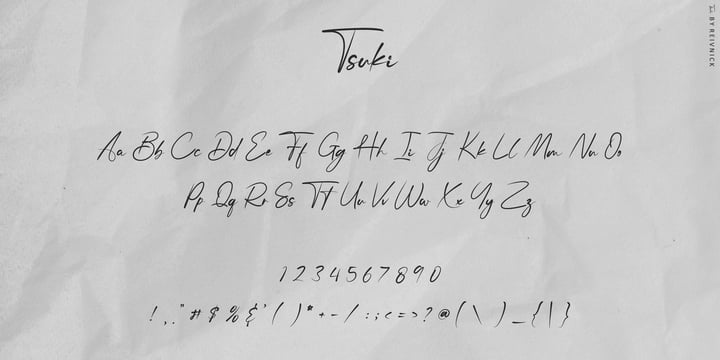 Tsuki
BY REIVNICK
Aa Bb Cc Dd Ee Ff Gg Hh Ii Jj Kk Ll Mm Nn Oo
Pp Qq Rr Ss Tt Uu Vv Ww Xx Yy Zz
1 2 3 4 5 6 7 8 9 0
! , . " # $ % & ' ( ) * + - / : ; < = > ? @ ( \ ) _ { | }